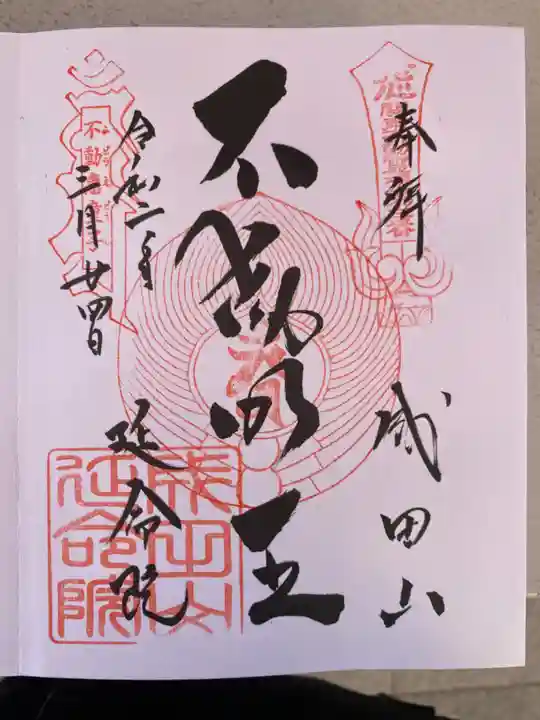 奉拝
成田山
不動明王
令和二年
三月廿四日
延命院
成田山
延命院